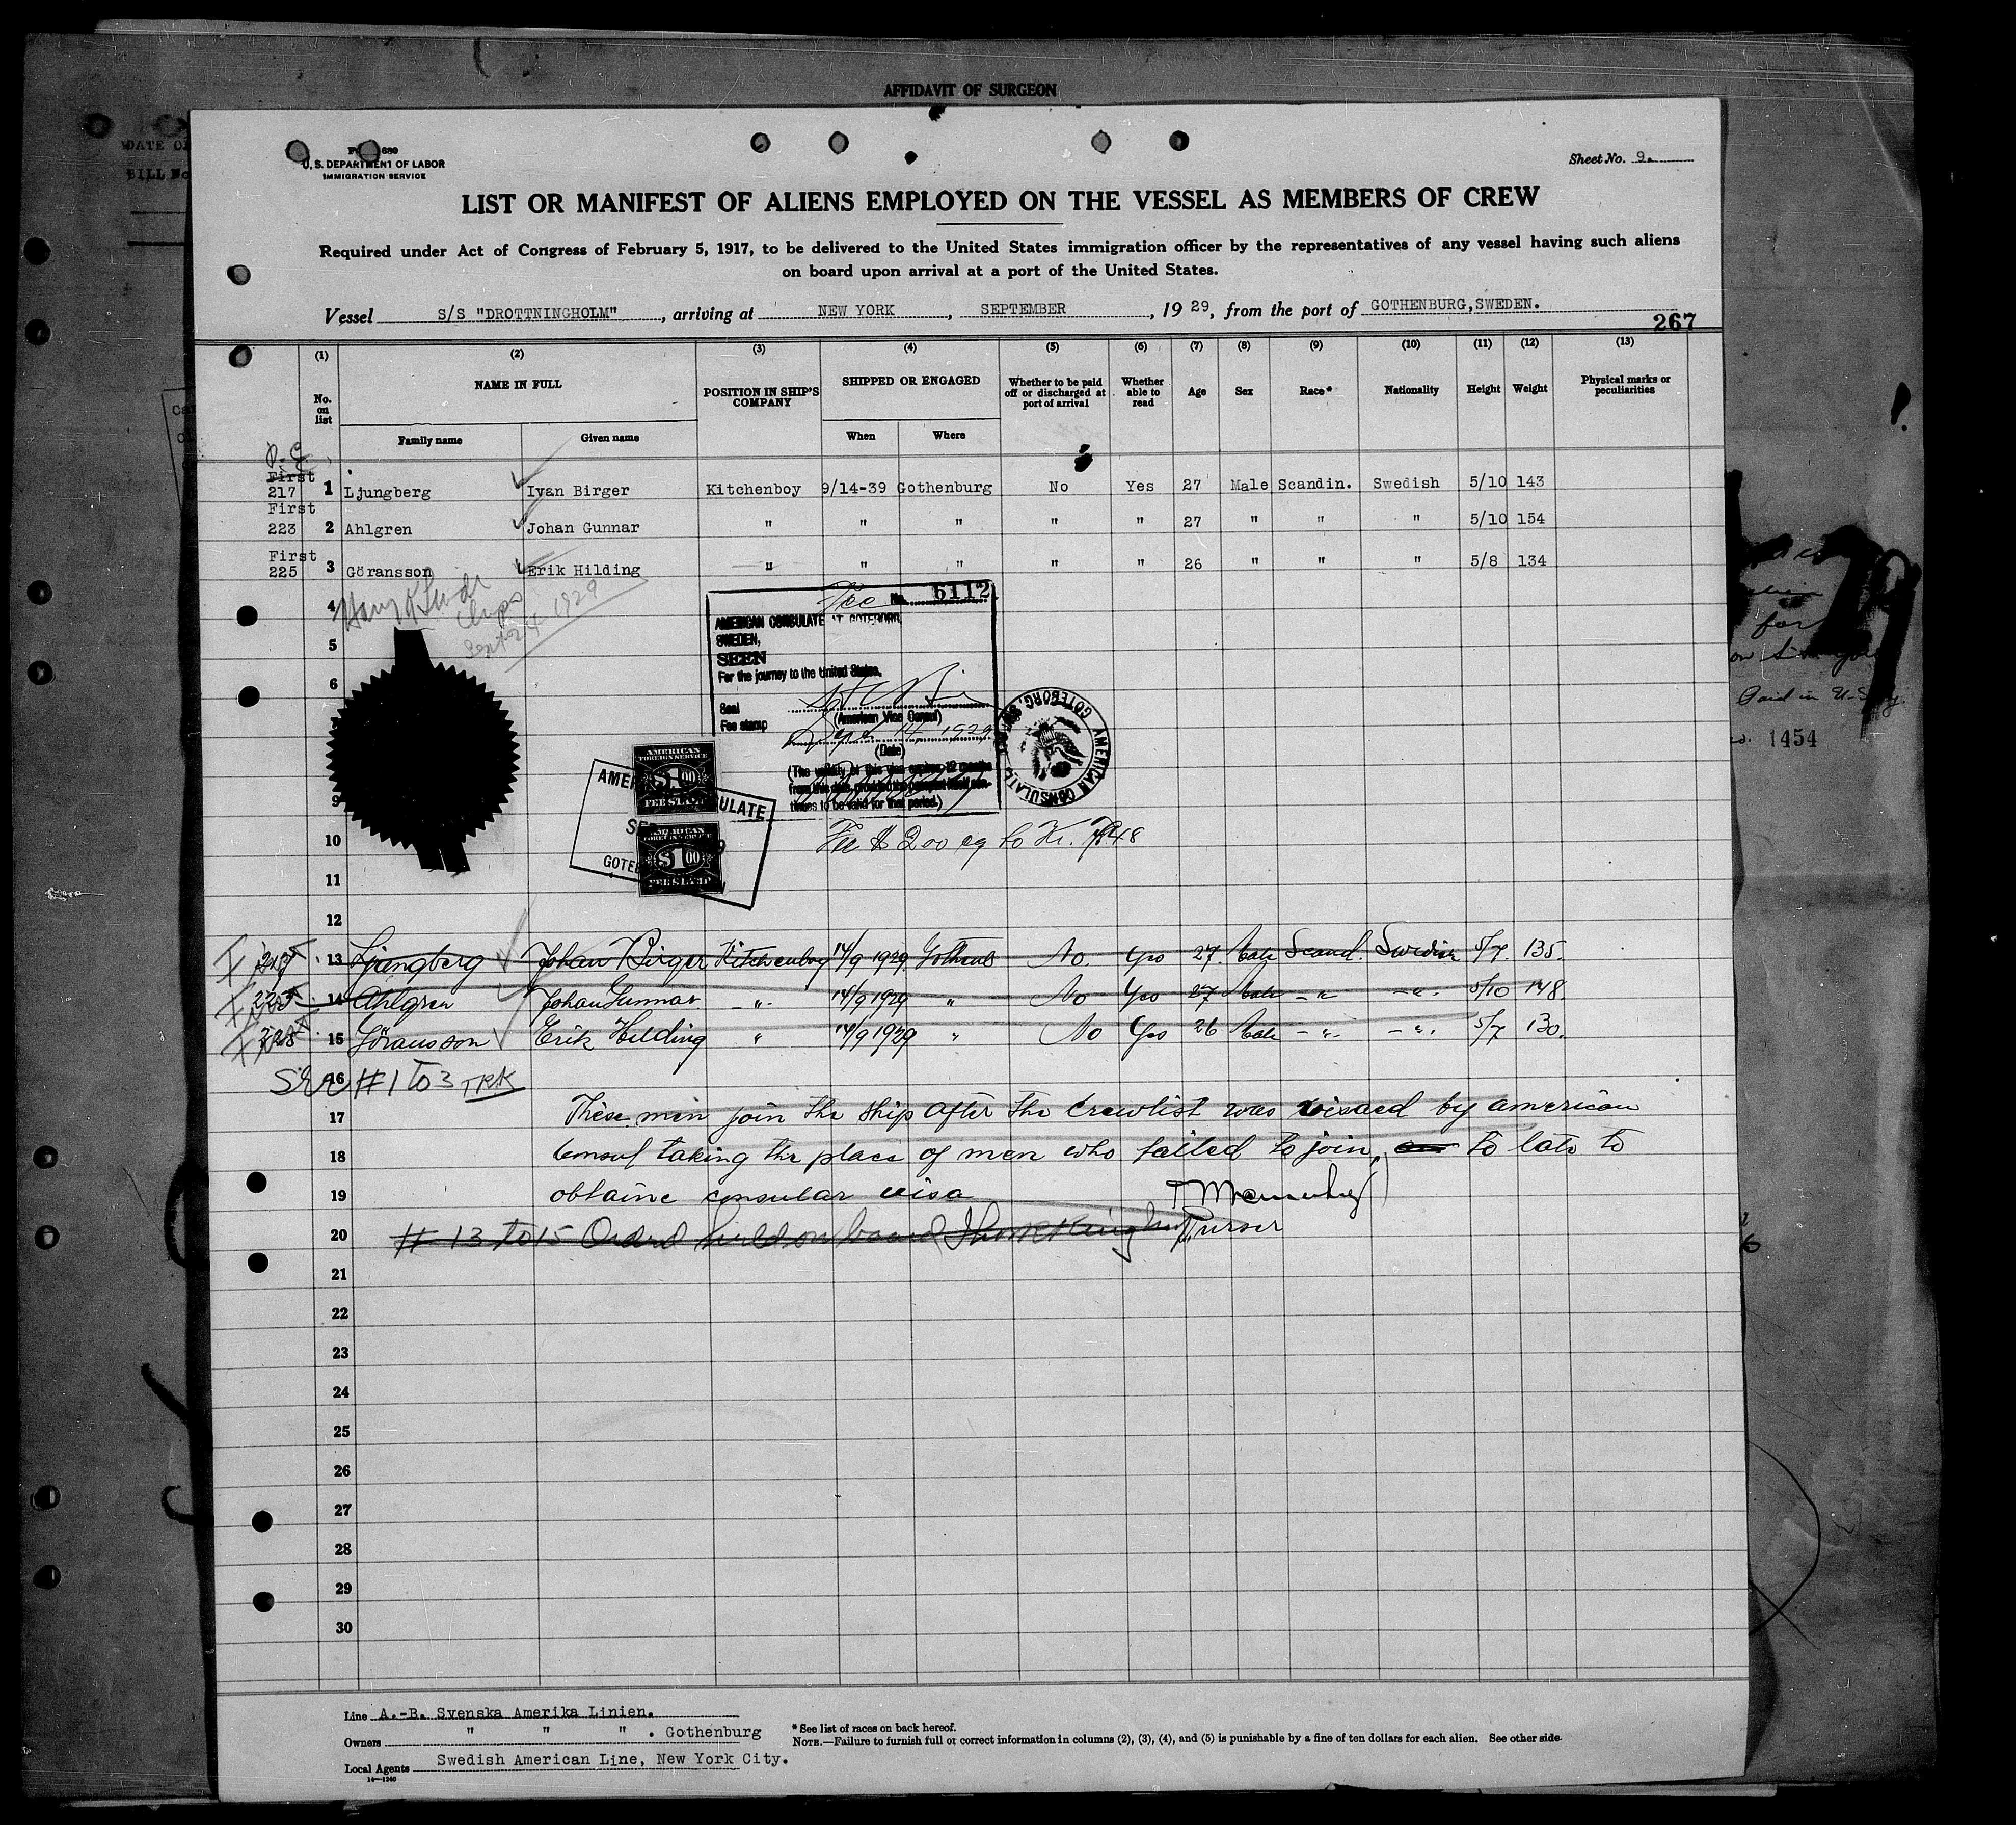 AFFIDAVIT OF SURGEON
DATE OF
BILL No
U. S. DEPARTMENT OF LABOR
IMMIGRATION SERVICE
Sheet No. 9.
LIST OR MANIFEST OF ALIENS EMPLOYED ON THE VESSEL AS MEMBERS OF CREW
Required under Act of Congress of February 5, 1917, to be delivered to the United States immigration officer by the representatives of any vessel having such aliens
on board upon arrival at a port of the United States.
Vessel S/S "DROTTNINGHOLM", arriving at NEW YORK, SEPTEMBER, 19 29, from the port of GOTHENBURG,SWEDEN.
267
(1) (2) (3) (4) (5) (6) (7) (8) (9) (10) (11) (12) (13)
No. on list NAME IN FULL POSITION IN SHIP'S COMPANY SHIPPED OR ENGAGED Whether to be paid off or discharged at port of arrival Whether able to read Age Sex Race* Nationality Height Weight Physical marks or peculiarities
Family name Given name When Where
First 217 1 Ljungberg Ivan Birger Kitchenboy 9/14-39 Gothenburg No Yes 27 Male Scandin. Swedish 5/10 143
First 223 2 Ahlgren Johan Gunnar " " " " " 27 " " " 5/10 154
First 225 3 Göransson Erik Hilding " " " " " 26 " " " 5/8 134
4
Sept 24 1929
5
6
No. 6112
AMERICAN CONSULATE AT GOTEBORG,
SWEDEN,
SEEN
For the journey to the United States.
Seal
(American Vice Consul)
Fee stamp
Sept 14, 1929
(Date)
(The validity of this visa expires 12 months
from this date, provided the passport itself con-
tinues to be valid for that period.)
AMERICAN CONSULATE GOTEBORG,
AMERICAN
FOREIGN SERVICE
$1.00
FEE STAMP
AMERICAN
FOREIGN SERVICE
$1.00
FEE STAMP
1454
9
10 Fee $ 2.00 eq to Kr.
11
12
13 Ljungberg Johan Birger Kitchenboy 14/9 1929 Gothenb No Yes 27. Male Scand. Swedish 5/7. 135.
14 Ahlgren Johan Gunnar. -"- 14/9 1929 " No Yes 27 Male -"- -"- 5/10 148.
15 Göransson Erik Hilding " 14/9 1929 " No Yes 26 Male -"- -"- 5/7 130.
16 See #1 to 3 TRK
17 These men join the ship after the Crewlist was visaed by american
18 Consul taking the place of men who failed to join, to late to
19 obtaine consular visa
20 # 13 to 15 Ordered held on board
Purser
21
22
23
24
25
26
27
28
29
30
Line A.-B. Svenska Amerika Linien.
Owners " " " . Gothenburg
Local Agents Swedish American Line, New York City.
14—1240
* See list of races on back hereof.
NOTE.—Failure to furnish full or correct information in columns (2), (3), (4), and (5) is punishable by a fine of ten dollars for each alien. See other side.